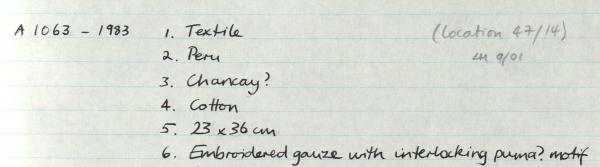 A 1063 - 1983 1. Textile (location 47/14)
2. Peru LH 9/01
3. Chancay?
4. Cotton
5. 23 x 36 cm
6. Embroidered gauze with interlocking puma? motif